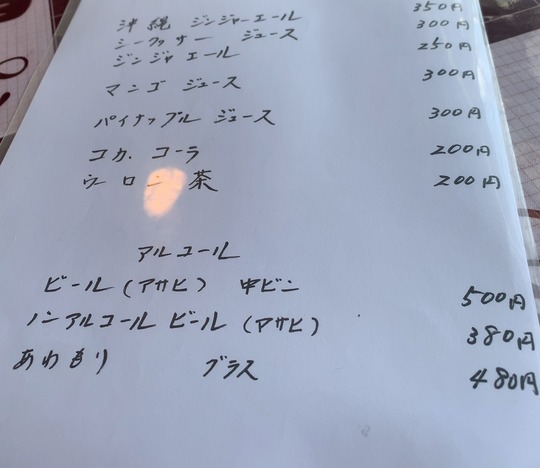 沖縄 ジンジャーエール 350円
シークァサー ジュース 300円
ジンジャ エール 250円
マンゴ ジュース 300円
パイナップル ジュース 300円
コカ.コーラ 200円
ウーロン茶 200円
アルコール
ビール(アサヒ) 中ビン 500円
ノンアルコール ビール (アサヒ) 380円
あわもり グラス 480円